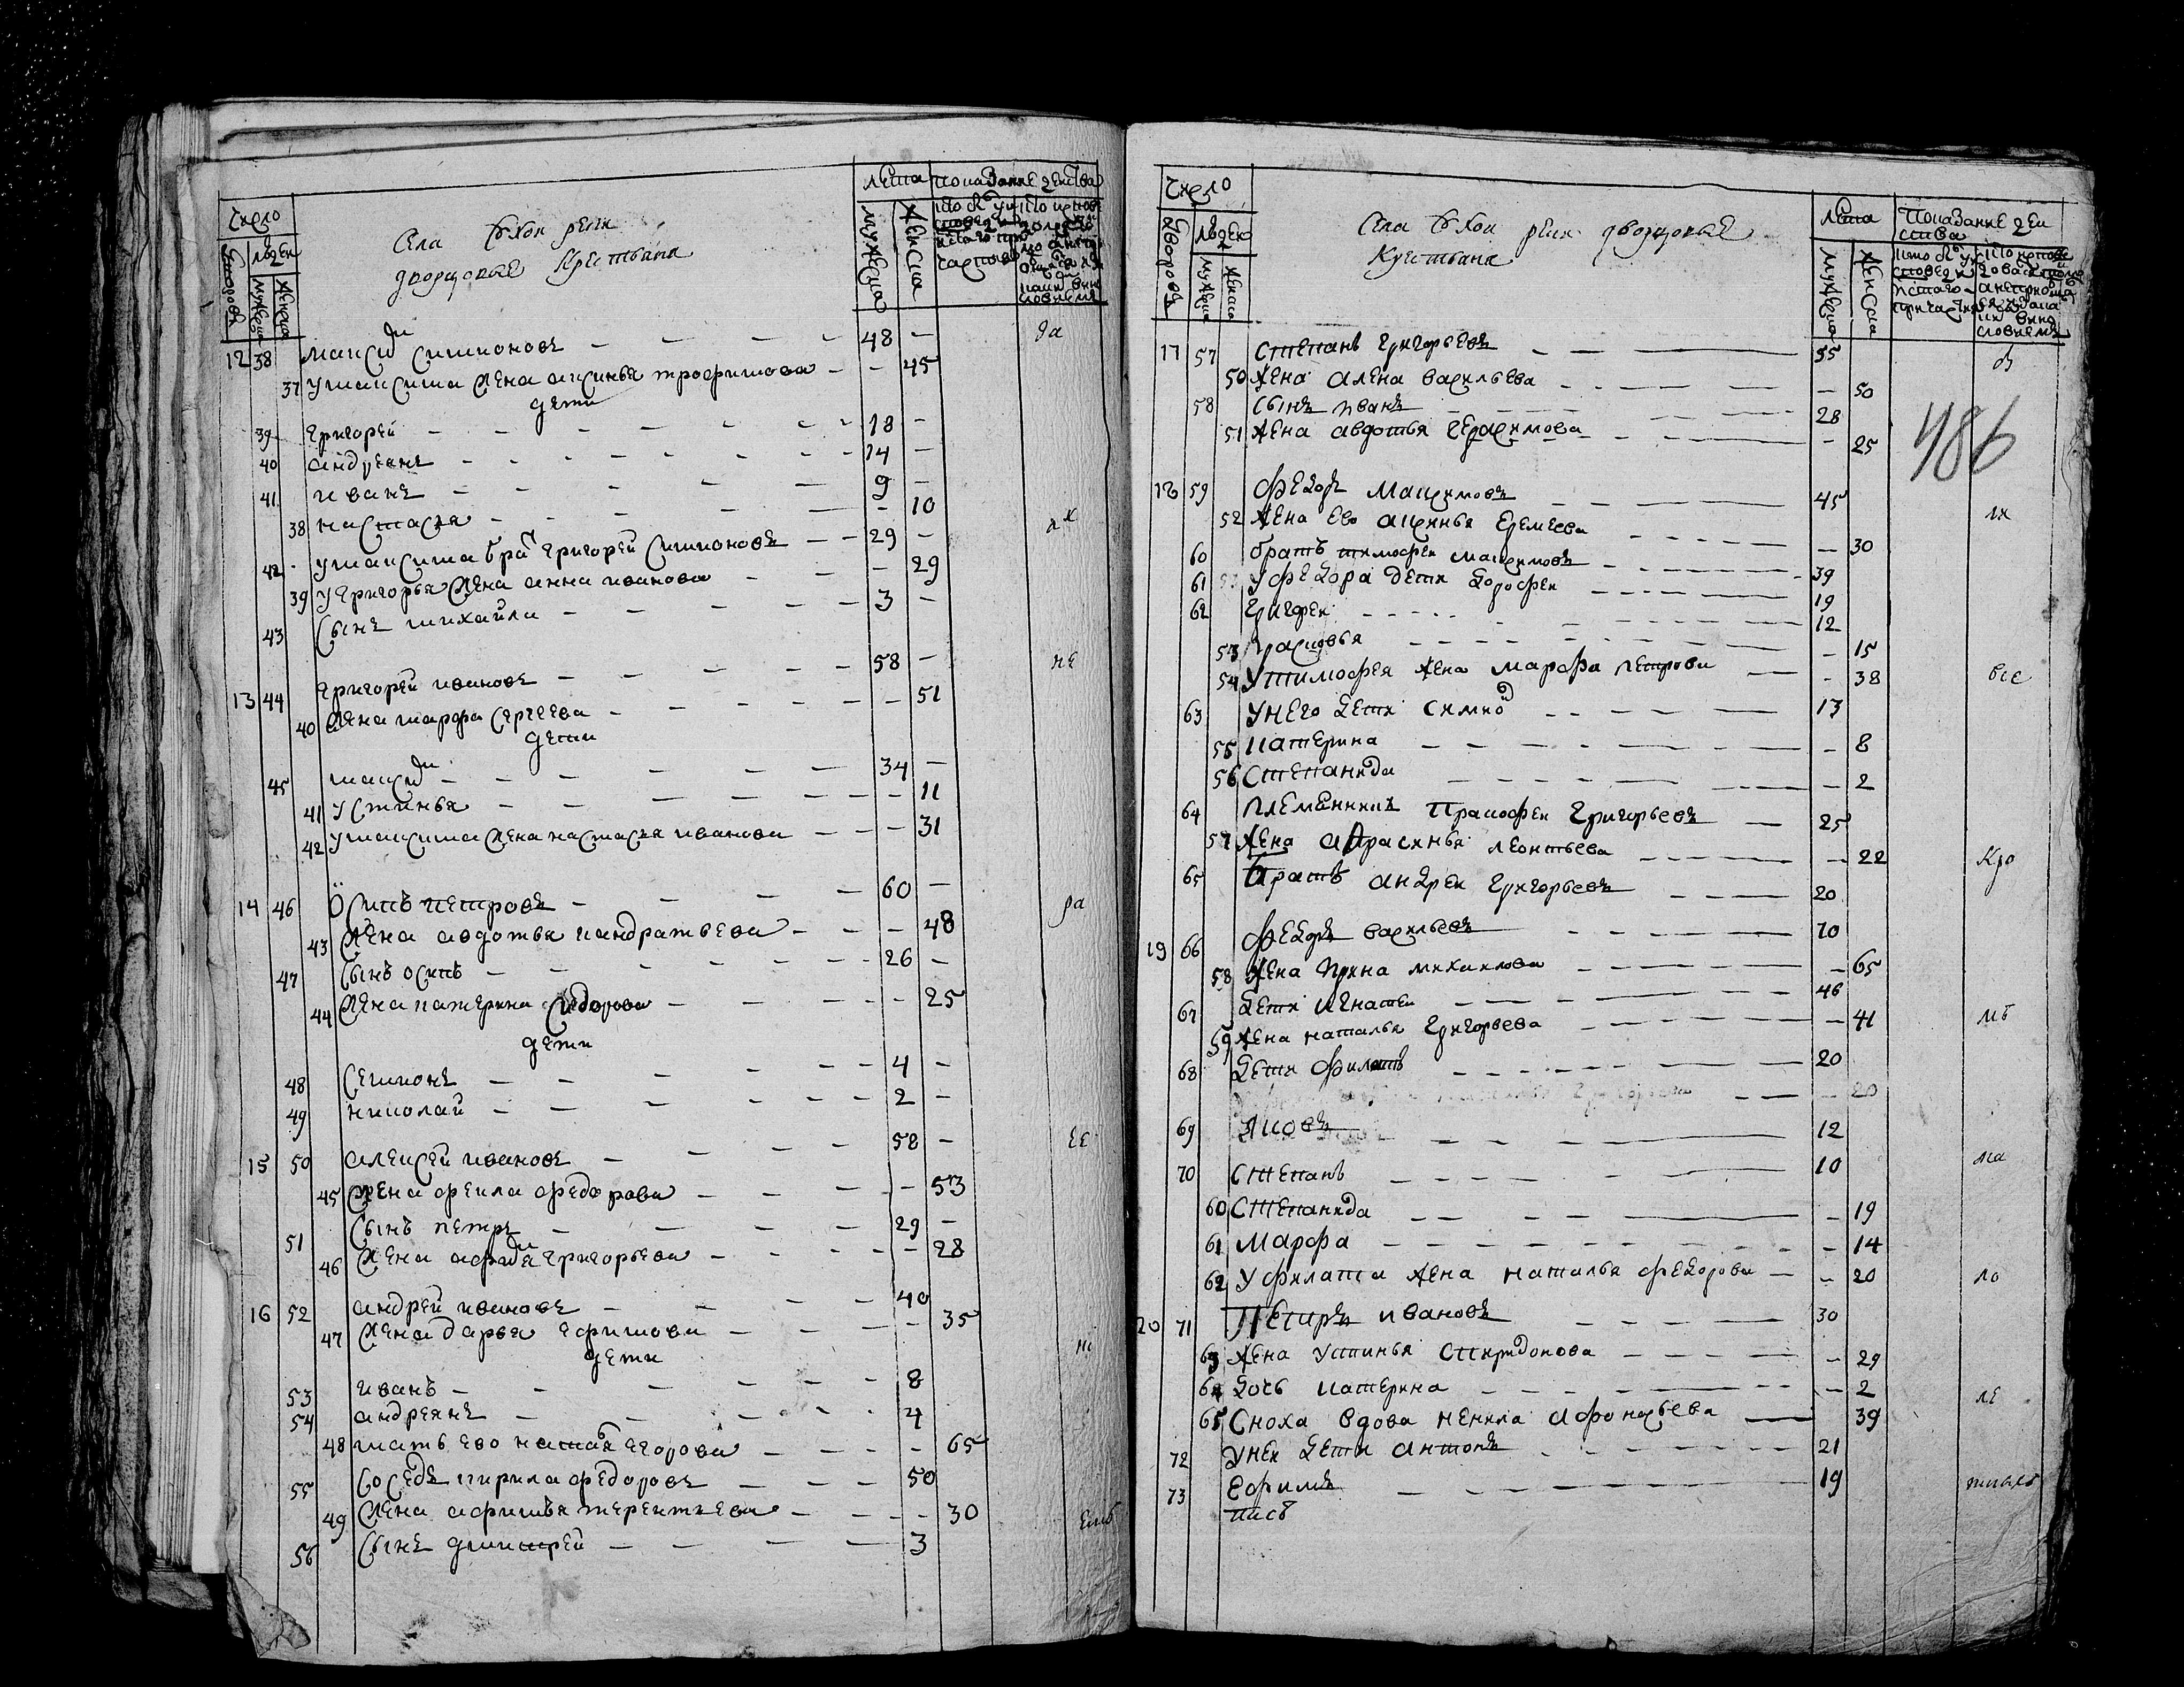 Число
дворовъ
людеи
мужеска
женска
Села рекн
дворцовые крестьяня
лѣта
мужеска
женска
показание действа
12 38 Максим Симионовъ 48 - да
37 у Максима жена Аксинья Трофимова - 45
дети
39 Григорей 18 -
40 Андреянъ 14 -
41 Иванъ 9 -
38 Настасья - 10
42 у Максима брат Григорей Симионовъ 29 -
39 у Григорья жена Анна Иванова - 29
43 Сынъ Михайла 3 -
13 44 Григорей Ивановъ 58 - не
40 жена Марфа Сергеева - 51
дети
45 Максим 34 -
41 Устинья - 11
42 у Максима жена Настасья Иванова - 31
14 46 Осипъ Петровъ 60 - ра
43 жена Авдотья Кандратьева - 48
47 Сынъ Осипъ 26 -
44 жена Катерина Сидорова - 25
дети
48 Семионъ 4 -
49 Николай 2 -
15 50 Алексей Ивановъ 58 - ее
45 жена Фекла Федорова - 53
51 Сынъ Петръ 29 -
46 жена Афимия Григорьева - 28
16 52 Андрей Ивановъ 40
47 жена Дарья Ефимова - 35
дети
53 Иванъ 8
54 Андреянъ 4
48 мать ево Наталя Егорова - 65
55 Соседъ Кирила Федоровъ 50
49 жена Афимья Терентьева - 30
56 Сынъ Дмитрей 3
Число
дворовъ
людеи
мужеска
женска
Села рекн дворцовые
Крестьяня
лѣта
мужеска
женска
Показание деиства
17 57 Степанъ Григорьевъ 55
50 жена Алена Васильева - 50
58 Сынъ Иванъ 28
51 жена Авдотья Герасимова - 25
486
18 59 Федоръ Максимовъ 45
52 жена ево Аксинья Еремеева - 30
60 братъ Тимофеи Максимовъ 39
61 у Федора дети Дорофеи 19
62 Григореи 12
53 Прасковья - 15
54 у Тимофея жена Марфа Петрова - 38 все
63 у него дети Симио 13
55 Катерина - 8
56 Степанида - 2
64 Племянникъ Пракофеи Григорьевъ 25
57 жена Апрасинья Леонтьева - 22 кро
65 братъ Андреи Григорьевъ 20
19 66 Федоръ Васильевъ 70
58 жена Ирина Михаилова - 65
67 дети Игнатеи 46
59 жена Наталья Григорьева - 41
68 дети Филатъ 20
- 20
69 Яковъ 12
70 Степанъ 10
60 Степанида - 19
61 Марфа - 14
62 у Филата жена Наталья Федорова - 20 ло
20 71 Петръ Ивановъ 30
63 жена Устинья Спиридонова - 29
64 дочь Катерина - 2
65 Сноха вдова Ненила Афонасьева 39
72 у неи дети Антонъ 21
73 Ефимъ 19